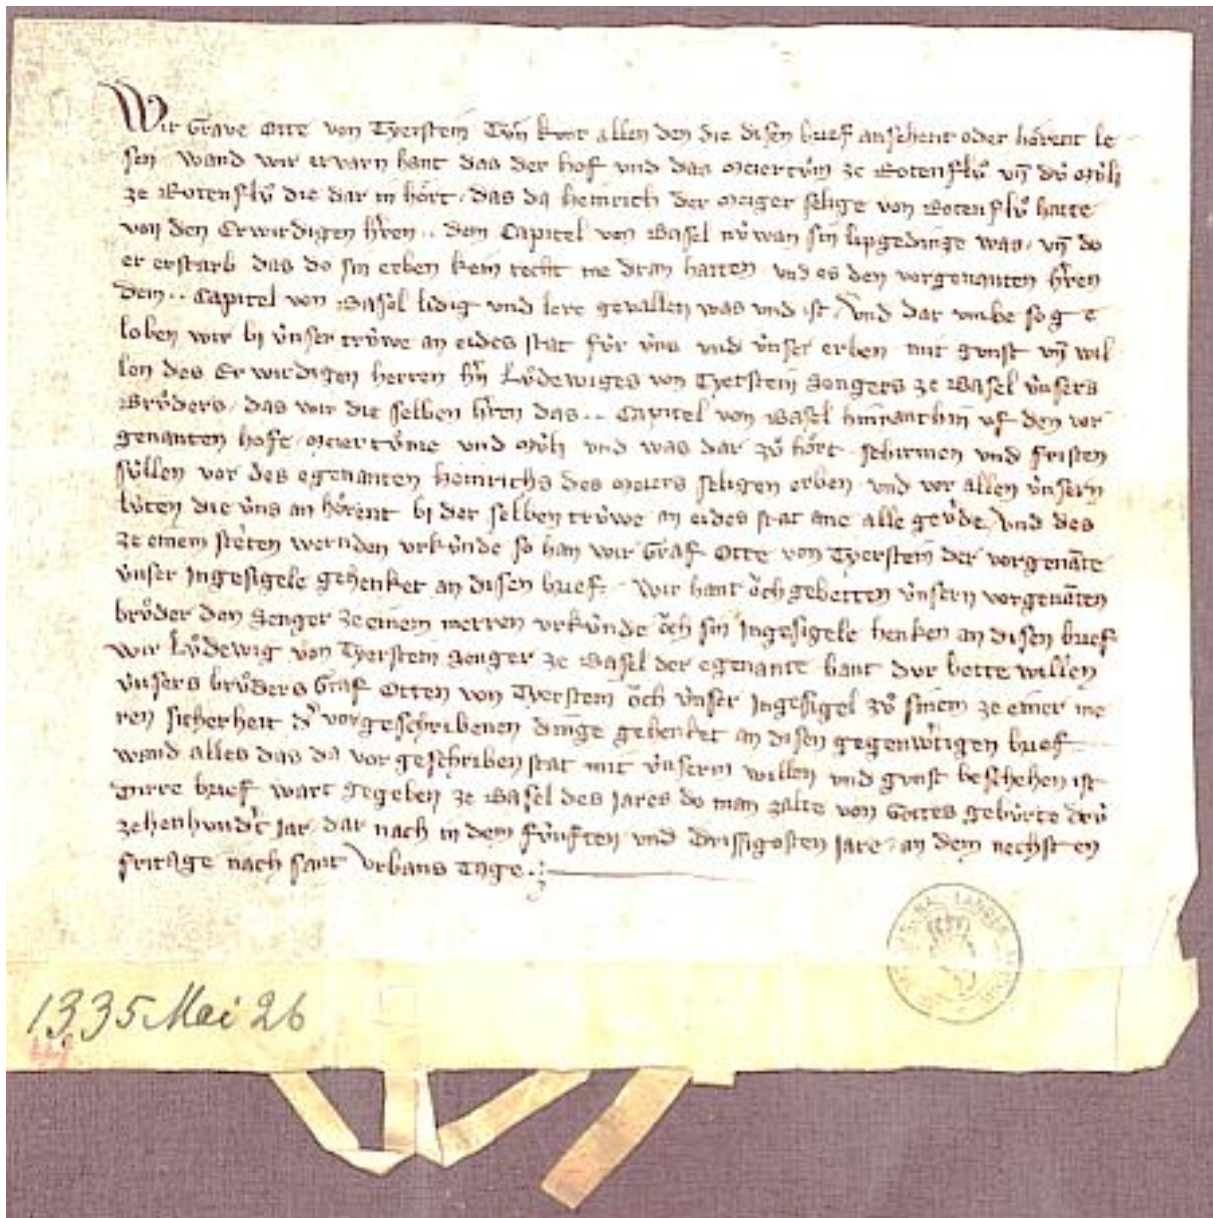 Wir Grave Otte von Tyerstein Tůn kunt allen den die disen brief ansehent oder hörent le
sen wand wir ervarn hant das der hof und das meiertům ze Rotenflů vn̄ dú múli
ze Rotenflů die dar in hört, das da heinrich der meiger selige von Rotenflů hatte
von den Erwirdigen h̓ren .. dem Capitel von Basel núwan sin lipgedinge was, vn̄ do
er erstarb das do sin erben kein recht me dran hatten und es den vorgenanten h̓ren
dem .. Capitel von Basel lidig und lere gevallen was und ist, Und dar umbe so ge
loben wir bi únser trúwe an eides stat fúr úns und únser erben mit gunst vn̄ wil
len des Erwirdigen herren hn̄ Lůdewiges von Tyerstein Sengers ze Basel únsers
Brůders, das wir die selben h̓ren das .. Capitel von Basel hinnanthin uf den vor
genanten hofe, meiertůme und múli und was dar zů hört schirmen und fristen
súllen vor des egenanten heinrichs des meiers seligen erben und vor allen únsern
lúten die úns an hörent bi der selben trúwe an eides stat ane alle gev̓de, Und des
ze einem steten wernden urkúnde so han wir Graf Otte von Tyerstein der vorgenāte
únser Ingesigele gehenket an disen brief. Wir hant öch gebetten únsern vorgenāten
brůder den Senger ze einem merren urkúnde öch sin Ingesigele henken an disen brief
Wir Lůdewig von Tyerstein Senger ze Basel der egenante hant dur bette willen
únsers brůders Graf Otten von Tyerstein öch únser Ingesigel zů sinem ze einer me
ren sicherheit d̓ vorgeschribenen dinge gehenket an disen gegenw̓tigen brief
wand alles das da vorgeschriben stat mit únserm willen und gunst beschehen ist
Dirre brief wart gegeben ze Basel des Jares do man zalte von Gottes gebúrte drú
zehenhund̓t Jar, dar nach in dem fúnften und drissigosten Jare, an dem nechsten
fritage nach sant Urbans Tage .
1335 Mai 26